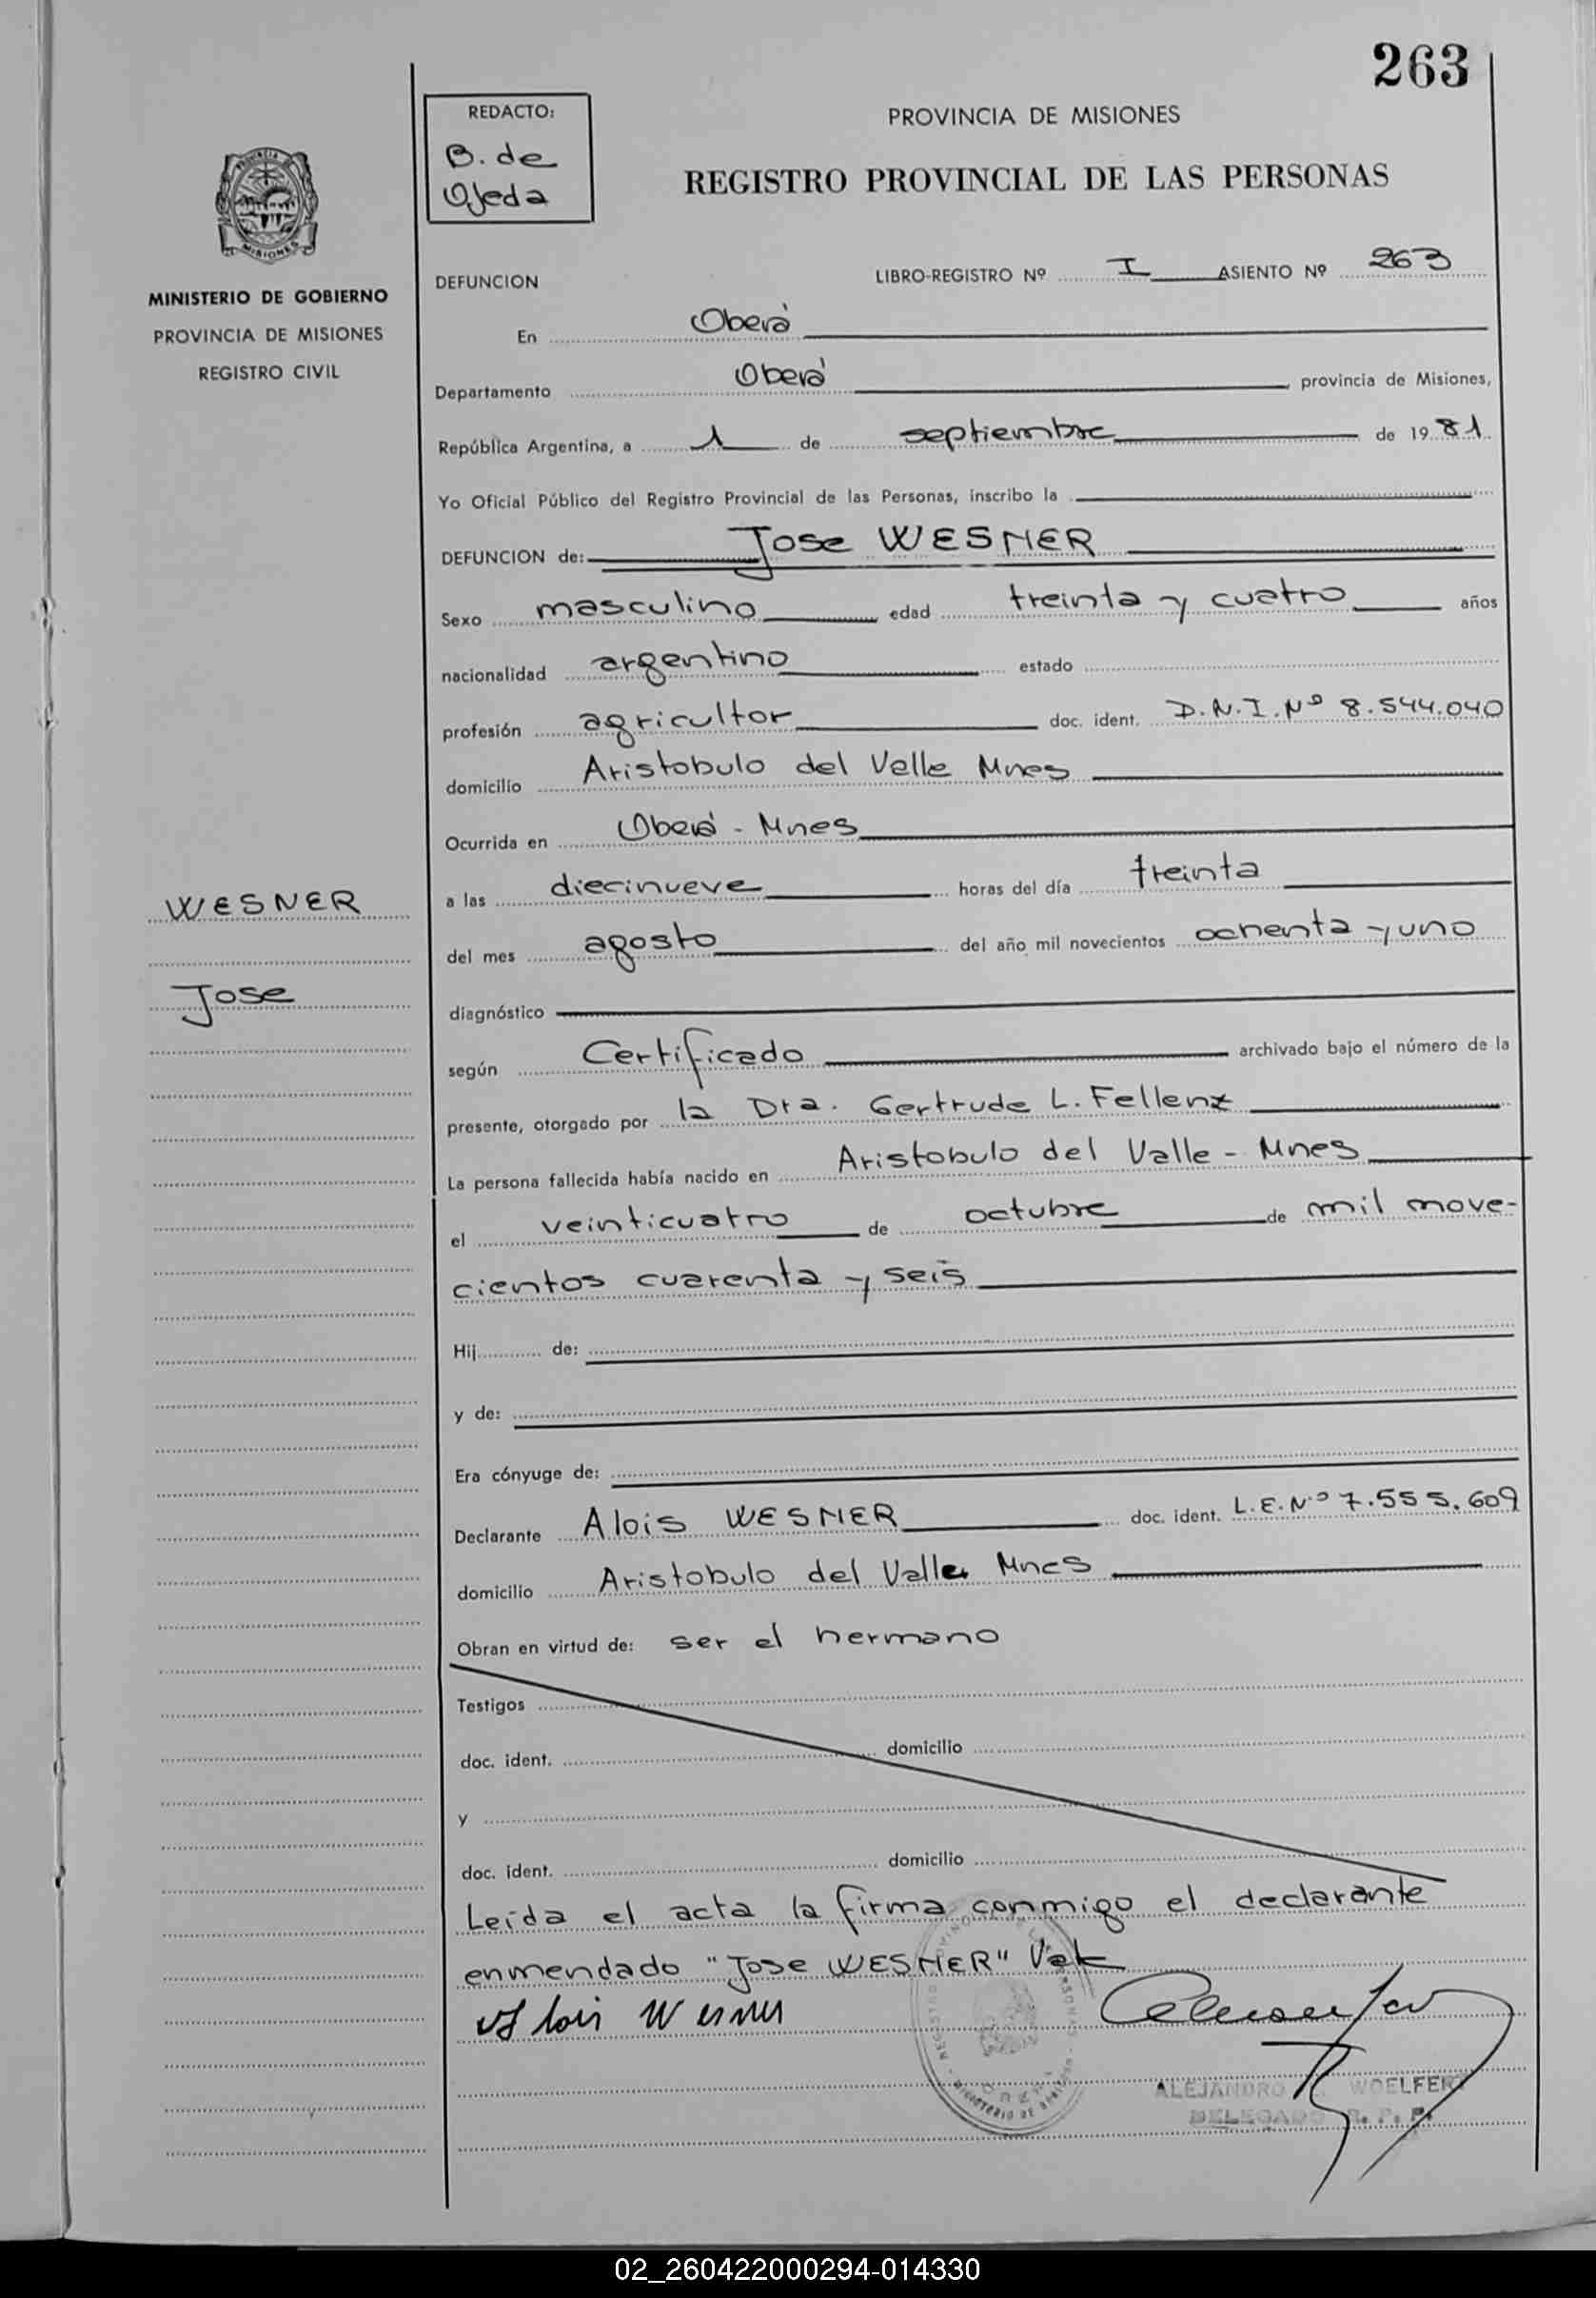 263
REDACTO:
B. de
Ojeda
PROVINCIA DE MISIONES
REGISTRO PROVINCIAL DE LAS PERSONAS
PROVINCIA DE
MISIONES
MINISTERIO DE GOBIERNO
PROVINCIA DE MISIONES
REGISTRO CIVIL
DEFUNCION LIBRO-REGISTRO Nº I ASIENTO Nº 263
En Oberá
Departamento Oberá provincia de Misiones,
República Argentina, a 1 de septiembre de 1981
Yo Oficial Público del Registro Provincial de las Personas, inscribo la
DEFUNCION de: Jose WESNER
Sexo masculino edad treinta y cuatro años
nacionalidad argentino estado
profesión agricultor doc. ident. D.N.I.Nº 8.544.040
domicilio Aristobulo del Valle Mnes
Ocurrida en Oberá - Mnes
WESNER
Jose
a las diecinueve horas del día treinta
del mes agosto del año mil novecientos ochenta y uno
diagnóstico
según Certificado archivado bajo el número de la
presente, otorgado por la Dra. Gertrude L. Fellenz
La persona fallecida había nacido en Aristobulo del Valle - Mnes
el veinticuatro de octubre de mil nove-
cientos cuarenta y seis
Hij de:
y de:
Era cónyuge de:
Declarante Alois WESNER doc. ident. L.E.Nº 7.555.609
domicilio Aristobulo del Valle Mnes
Obran en virtud de: ser el hermano
Testigos
doc. ident. domicilio
y
doc. ident. domicilio
Leida el acta la firma conmigo el declarante
enmendado "Jose WESNER" Vale
Alois Wesner
ALEJANDRO WOELFERT
DELEGADO R. P. P.
02_260422000294-014330